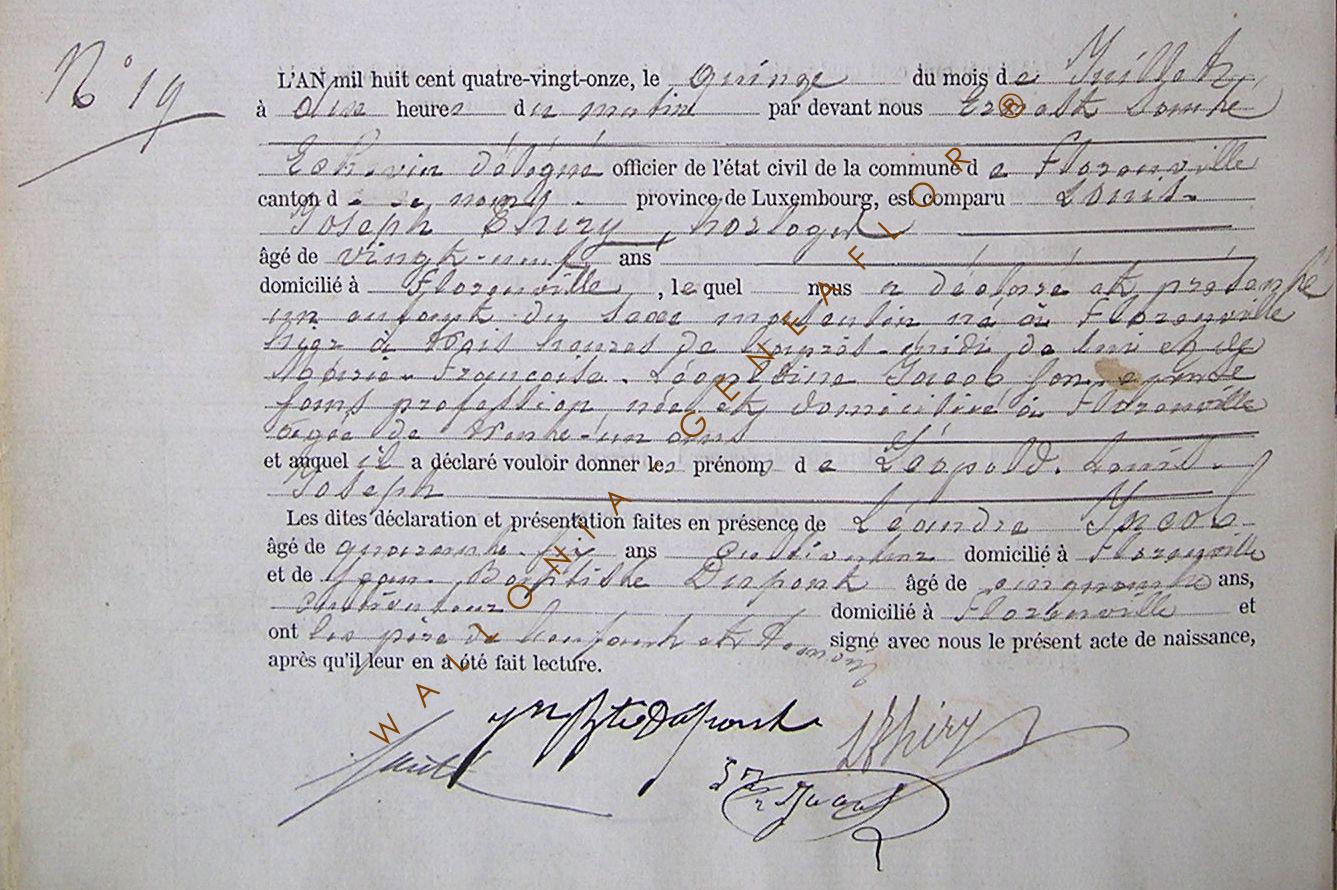 N° 19
L'AN mil huit cent quatre-vingt-onze, le quinze du mois de Juillet,
à dix heures du matin par devant nous Ernest
Echevin délégué officier de l'état civil de la commune de Florenville
canton d province de Luxembourg, est comparu Louis-
Joseph Thiry, horloger
âgé de vingt-neuf ans
domicilié à Florenville, lequel nous a déclaré et présenté
un enfant du sexe masculin né à Florenville
hier à trois heures de l'après-midi, de lui et de
Marie-Françoise-Léopoldine Jacob son épouse
sans profession, née et domiciliée à Florenville
âgée de trente-un ans
et auquel il a déclaré vouloir donner les prénoms de Léopold-Louis-
Joseph
Les dites déclaration et présentation faites en présence de Léandre Jacob
âgé de quarante-six ans cultivateur domicilié à Florenville
et de Jean-Baptiste Dupont âgé de cinquante ans,
cultivateur domicilié à Florenville et
ont les père de l'enfant et témoins signé avec nous le présent acte de naissance,
après qu'il leur en a été fait lecture.
LThiry
WALLONIA GENEAFLOR ®